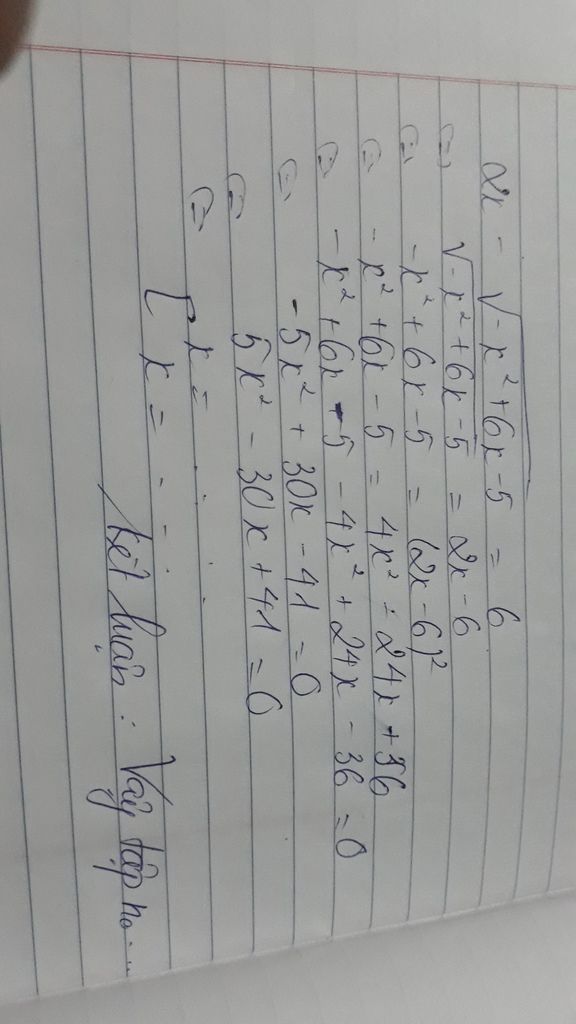 2x - √-x² + 6x - 5 = 6
(=) √-x² + 6x - 5 = 2x - 6
(=) -x² + 6x - 5 = (2x - 6)²
(=) -x² + 6x - 5 = 4x² - 24x + 36
(=) -x² + 6x - 5 - 4x² + 24x - 36 = 0
(=) -5x² + 30x - 41 = 0
(=) 5x² - 30x + 41 = 0
(=) [ x = . . .
x = - - .
kết luận : Vậy tập no ...